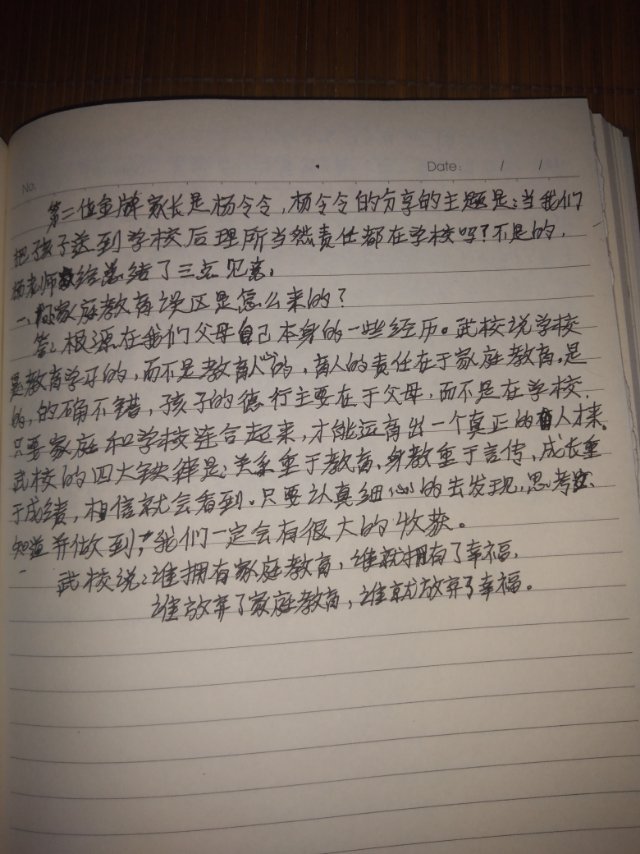 No.
Date: / /
第二位金牌家长是杨令令,杨令令的分享的主题是:当我们
把孩子送到学校后理所当然责任都在学校吗?不是的,
杨老师给总结了三点见意,
一、家庭教育误区是怎么来的?
答:根源在我们父母自己本身的一些经历。武校说学校
是教育学习的,而不是教育人的,育人的责任在于家庭教育。是
的,的确不错,孩子的德行主要在于父母,而不是在学校,
只要家庭和学校连合起来,才能运育出一个真正的人才来。
武校的四大铁律是:关系重于教育,身教重于言传,成长重
于成绩,相信就会看到。只要认真细心的去发现,思考
知道并做到,我们一定会有很大的收获。
武校说:谁拥有家庭教育,谁就拥有了幸福,
谁放弃了家庭教育,谁就放弃了幸福。